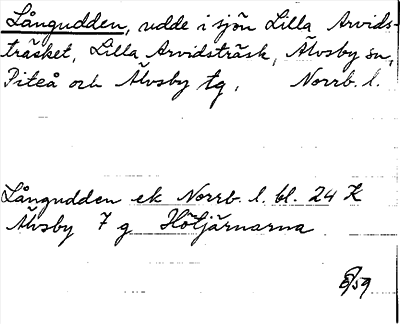 Långudden, udde i sjön Lilla Arvids-
träsket, Lilla Arvidsträsk, Älvsby sn,
Piteå och Älvsby tg, Norrb. l.
Långudden ek Norrb. l. bl. 24 K
Älvsby 7 g Höljärnarna